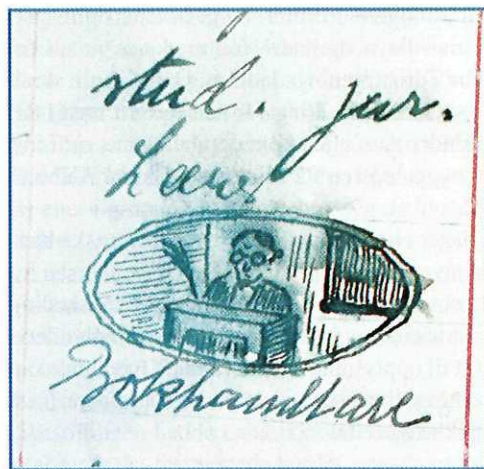 stud. jur.
Bokhandlare